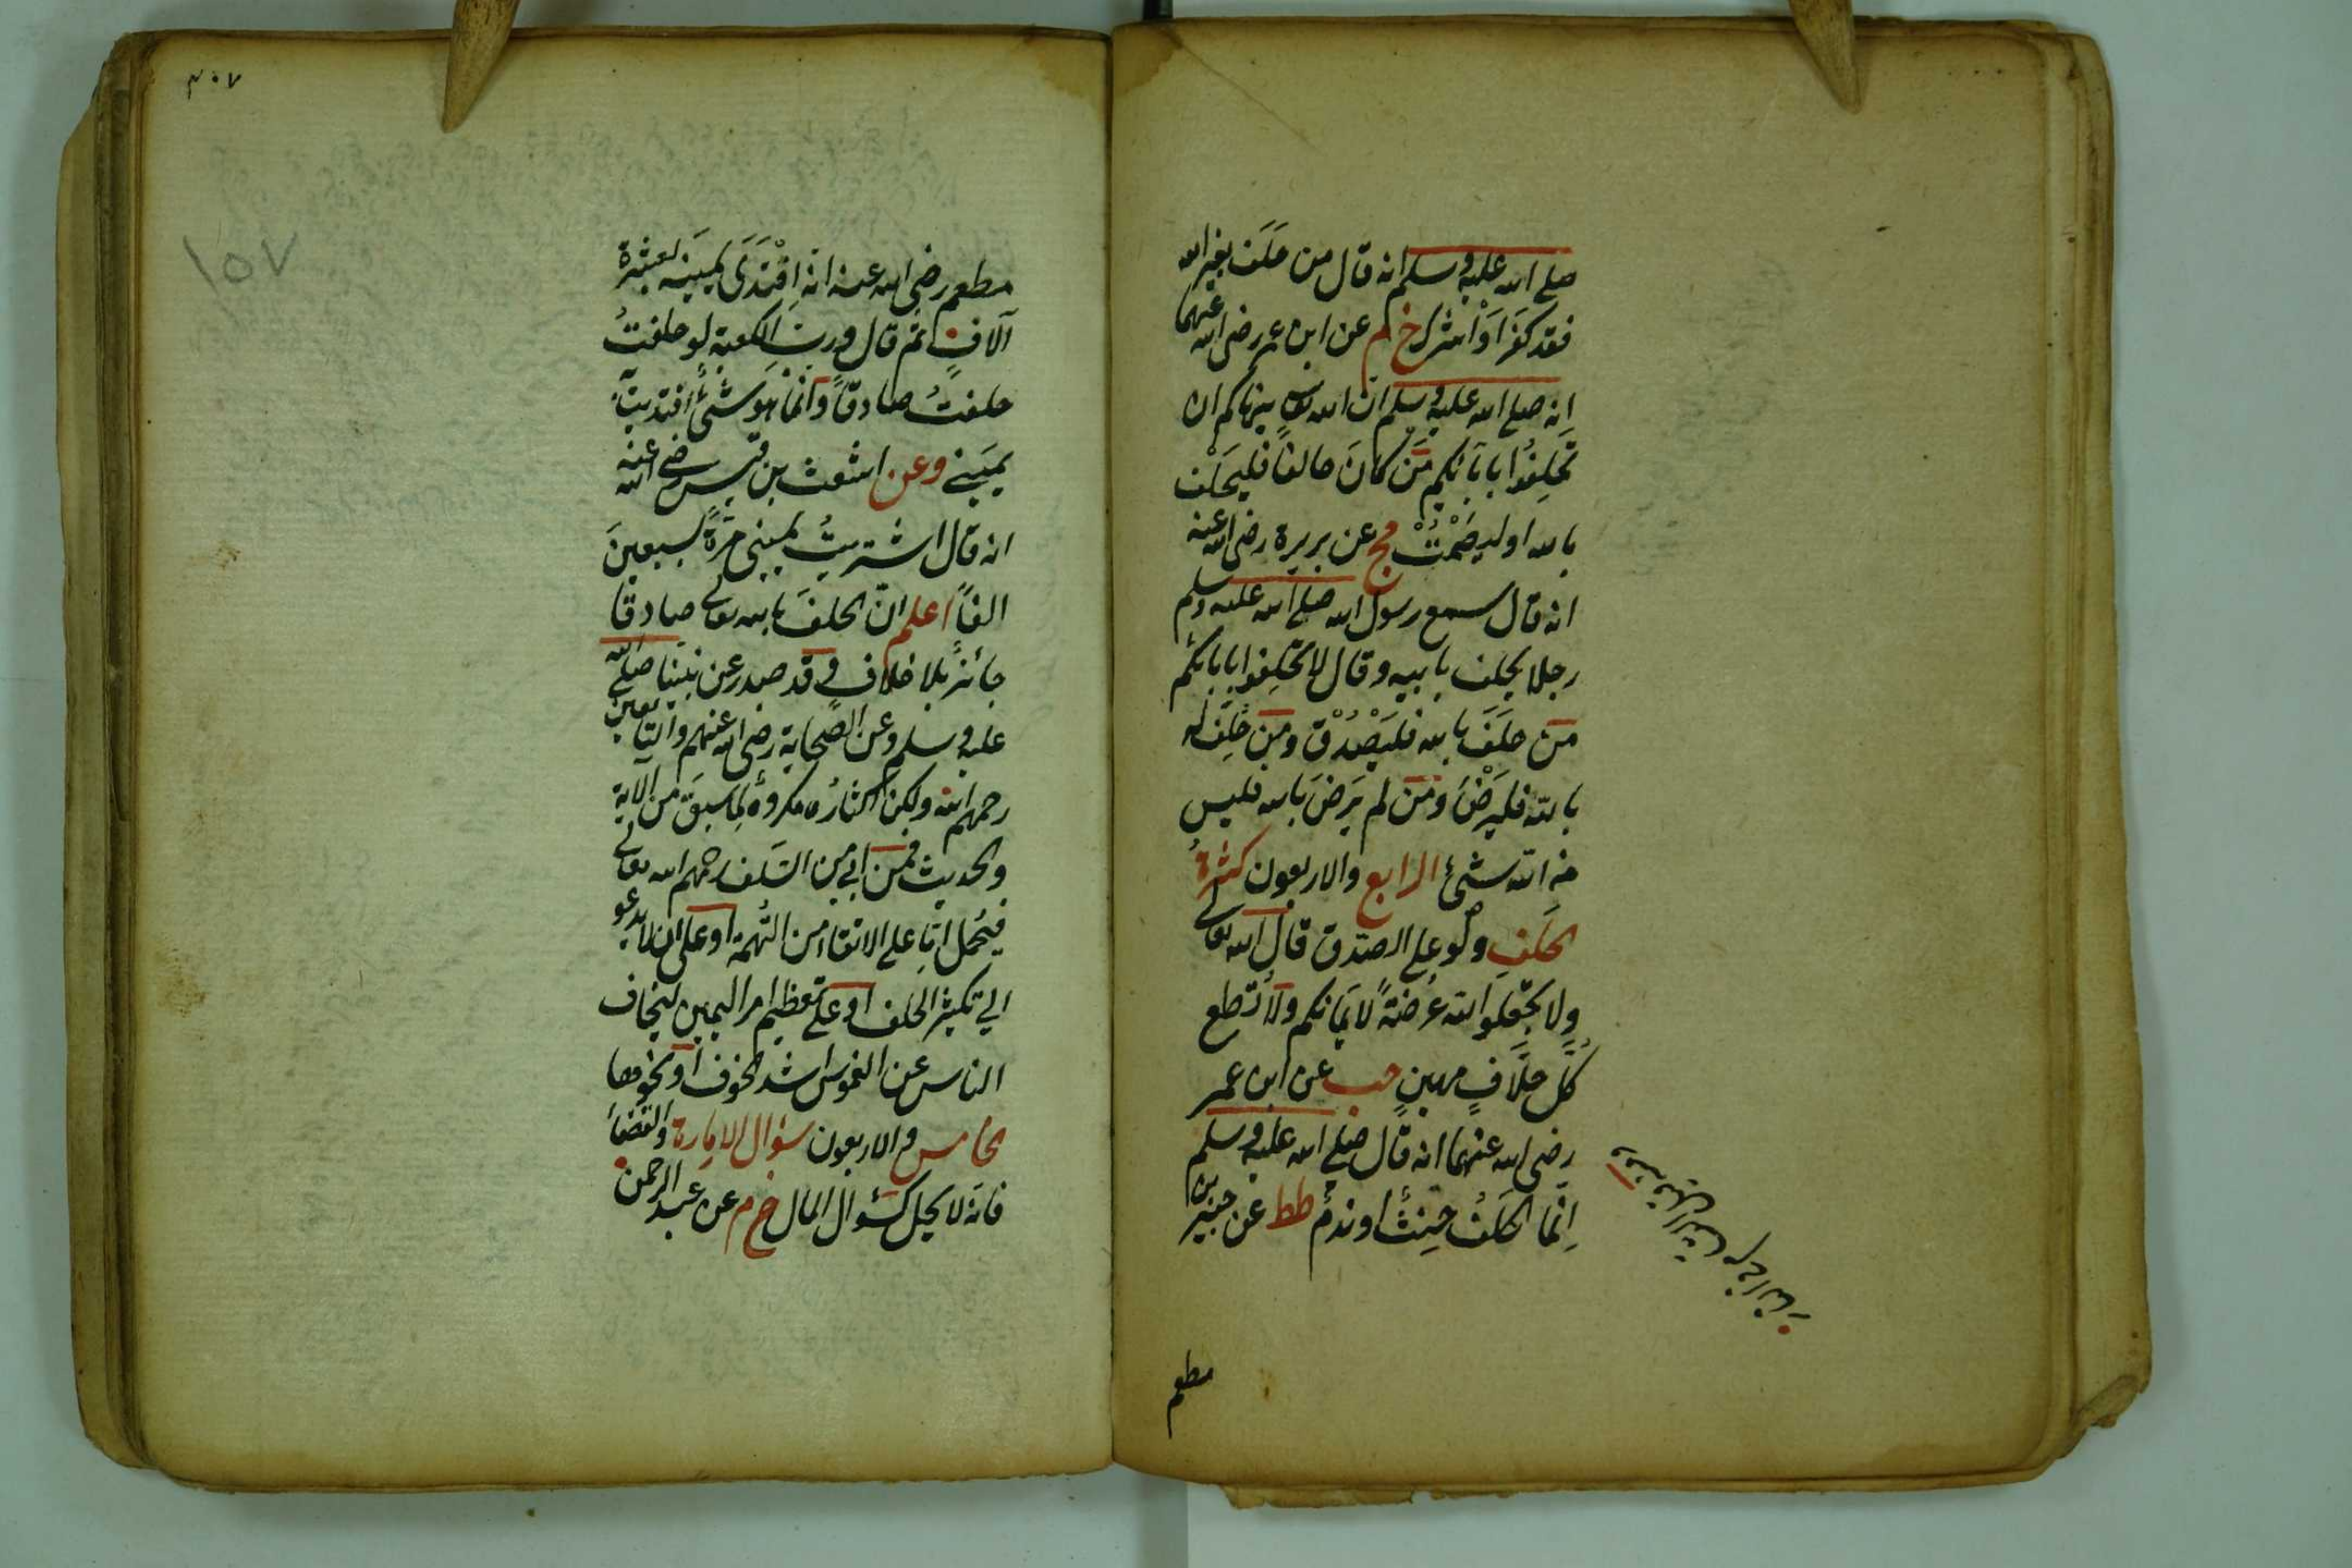 صلى الله عليه وسلم انه قال من حَلَفَ بغير الله
فقد كفرَ اَوْ اشرك خ م عن ابن عمر رضى الله عنهما
انه صلى الله عليه وسلم ان الله تعالى ينهاكم ان
تَحلِفُوا بابآئكم مَن كانَ حالفاً فليحَلْف
بالله او ليصْمُتْ مج عن بريرة رضى الله عنه
انه قال سمع رسول الله صلى الله عليه وسلم
رجلا يحلف بابيه وقال لا تحَلِفوا بابائكم
مَن حلَفَ بالله فليَصْدُقْ ومَن حُلِفَ له
بالله فليَرْضَ ومَن لم يَرضَ بالله فليس
من الله شئ الرابع والاربعون كثرةُ
الحَلفِ ولو على الصدق قال الله تعالى
ولا تجعَلوا الله عُرضةً لاَيمَانكم ولا تُطع
كُلَّ حلَّافٍ مهينٍ حب عن ابن عمر
رضى الله عنهما انه قال صلى الله عليه وسلم
اِنّما الحَلفُ حِنثٌ او ندمٌ طط عن جبير بن
مطعم
مطعم رضى الله عنه انه اِفْتَدَى يَمينَه بعشرة
آلافٍ ثم قال وربِّ الكعبة لو حلفتُ
حلفتُ صادقاً وانّما هو شئٌ افتديتُ به
يمَيني وعن اشعث بن قيس رضى الله عنه
انه قال اشتريتُ يميني مَرّةً بسبعينَ
الفاً اعلم انّ الحلفَ بالله تعالى صادقا
جائزٌ بلا خلاف وقد صدر عن نبينا صلى الله
عليه وسلم وعن الصَّحابة رضى الله عنهم والتابعين
رحمهم الله ولكن اكثارُه مكروهٌ لِمَا سبَقَ من الآية
والحديث فمَن ابى من السَلف رحمهم الله تعالى
فيُحمل اِمّا على الاتقاء من التُهمة او على ان لا يدعو
الى تكثير الحلف او على تعظيم امر اليمين ليخاف
الناس عن الغموس اشد الخوف او نحوها
الخامس والاربعون سؤال الامارة والقضاء
فانه لا يحل كسُؤال المال خ م عن عبد الرحمن